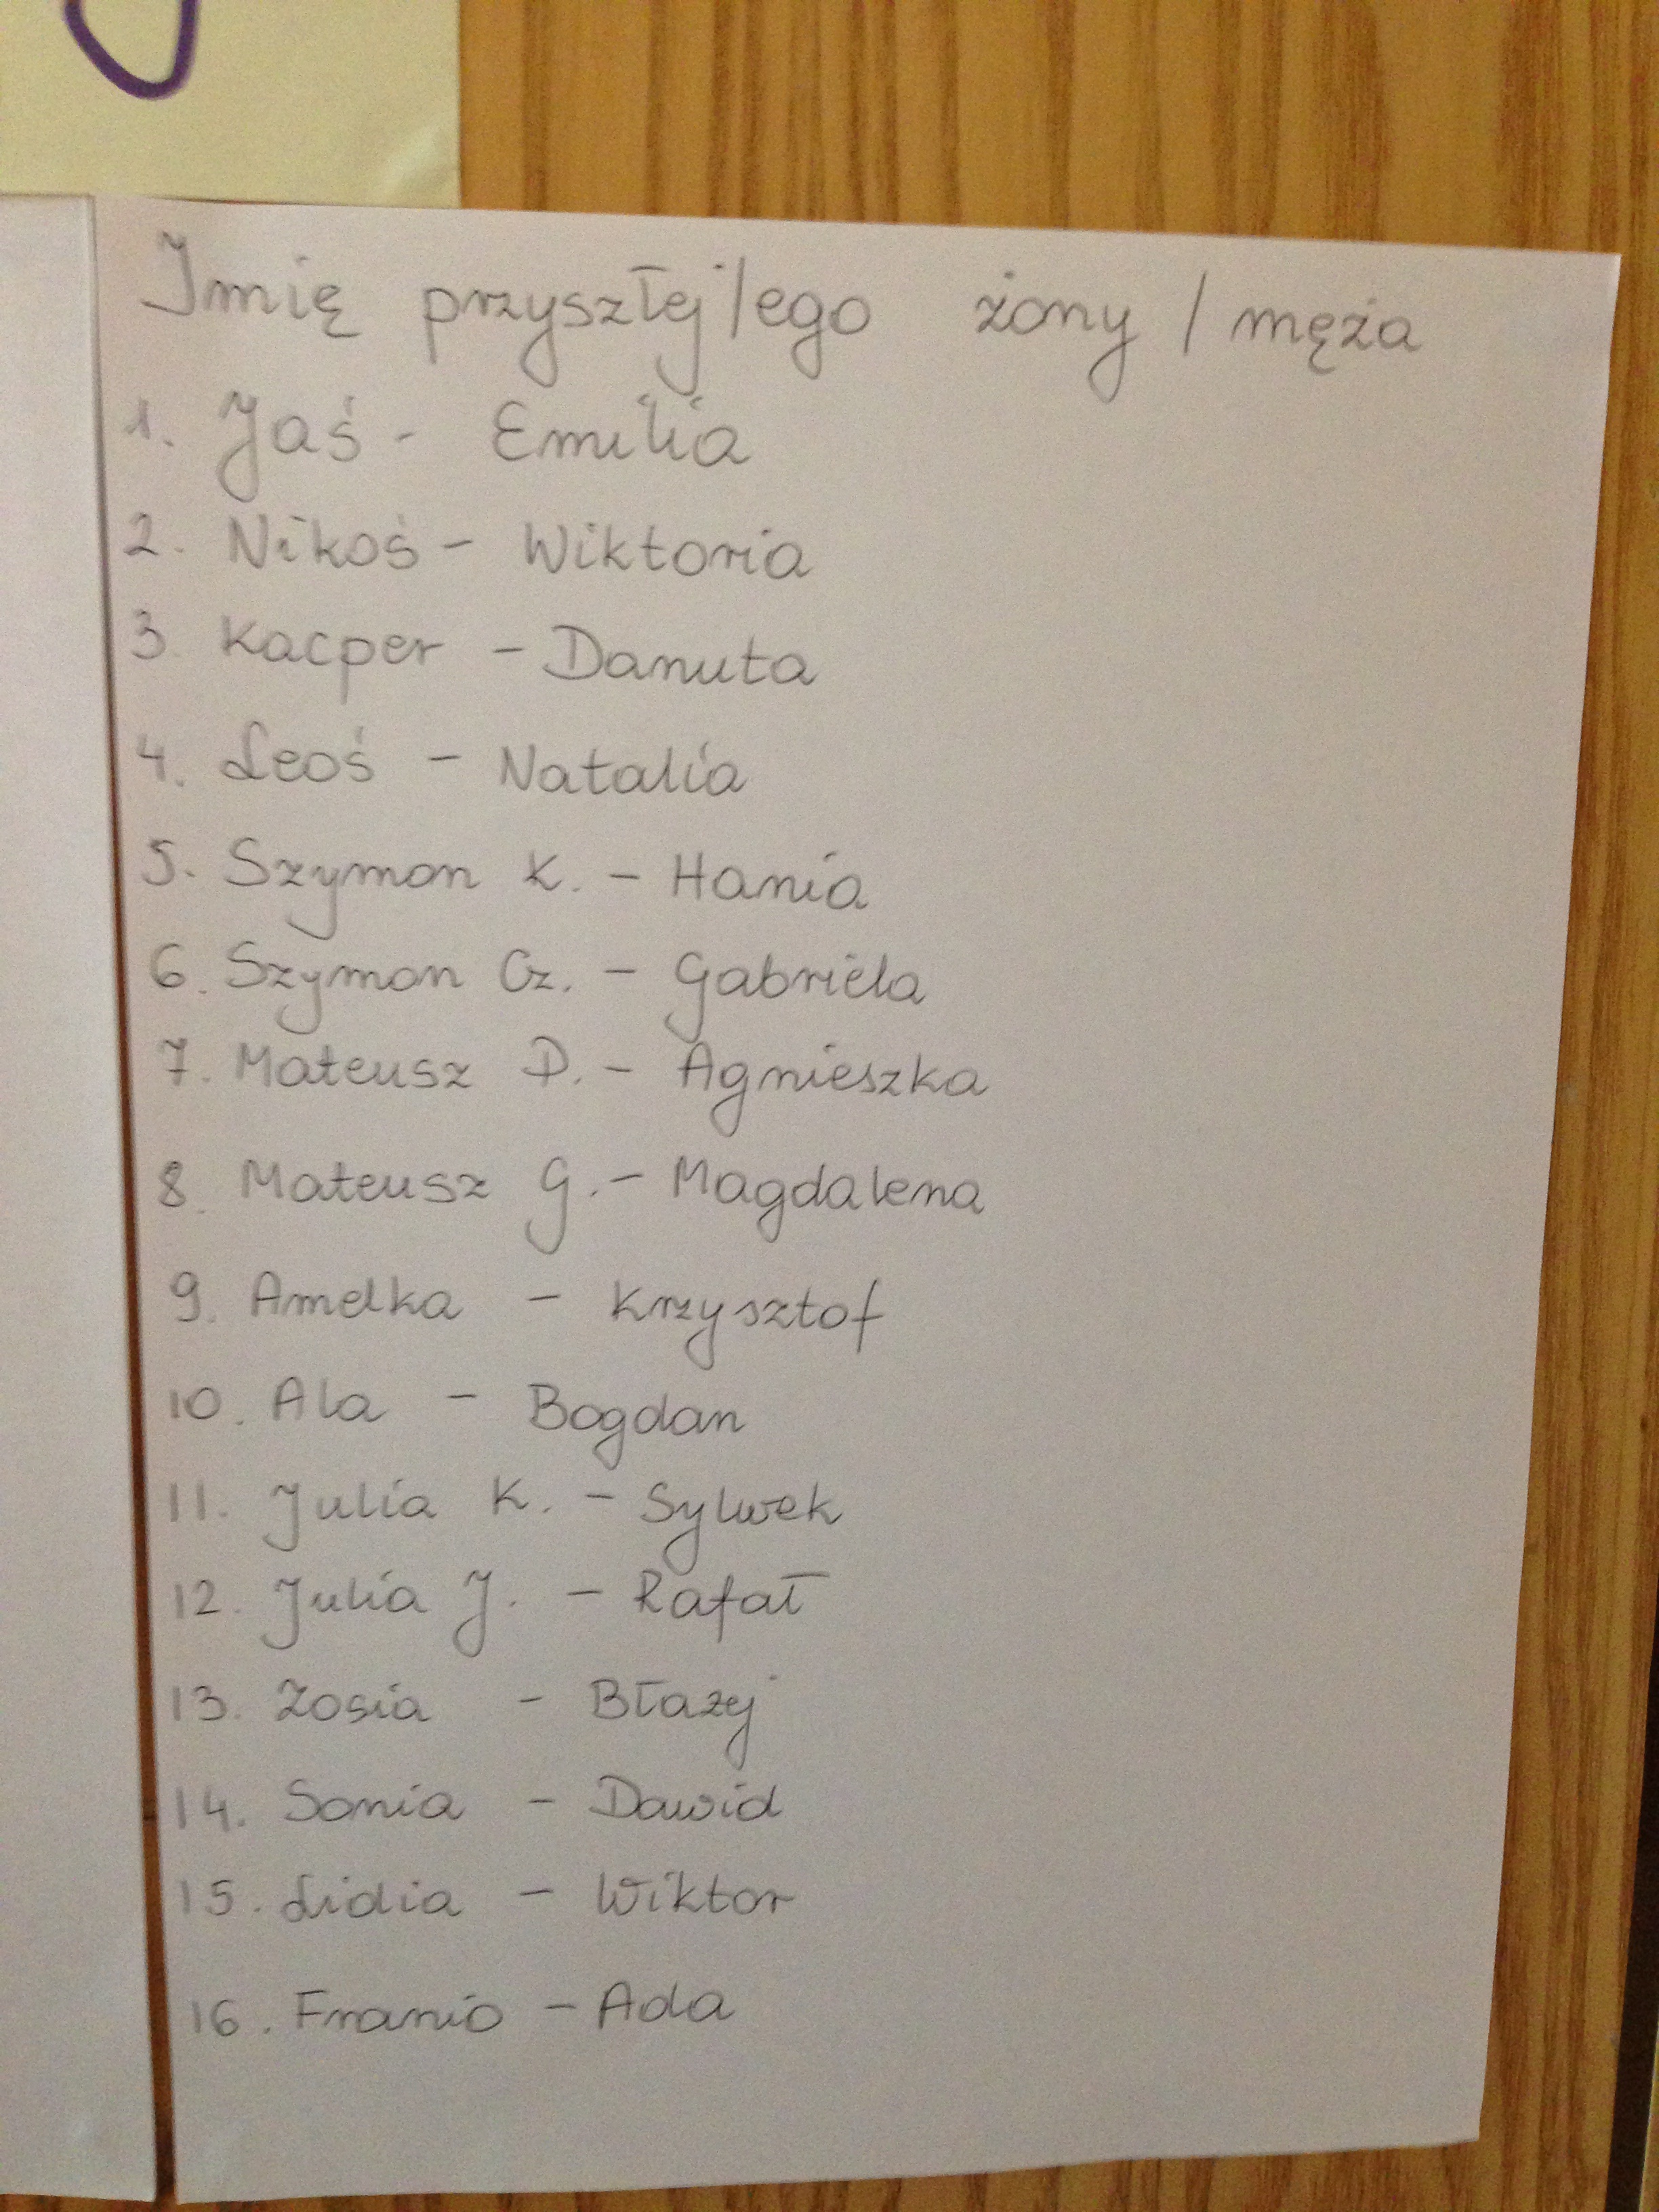 Imię przyszłej/ego żony / męża
1. Jaś - Emilia
2. Nikoś - Wiktoria
3 Kacper - Danuta
4. Leoś - Natalia
5. Szymon K. - Hania
6. Szymon Cz. - Gabriela
7. Mateusz D. - Agnieszka
8. Mateusz G. - Magdalena
9. Amelka - Krzysztof
10. Ala - Bogdan
11. Julia K. - Sylwek
12. Julia J. - Rafał
13. Zosia - Błażej
14. Sonia - Dawid
15. Lidia - Wiktor
16. Franio - Ada